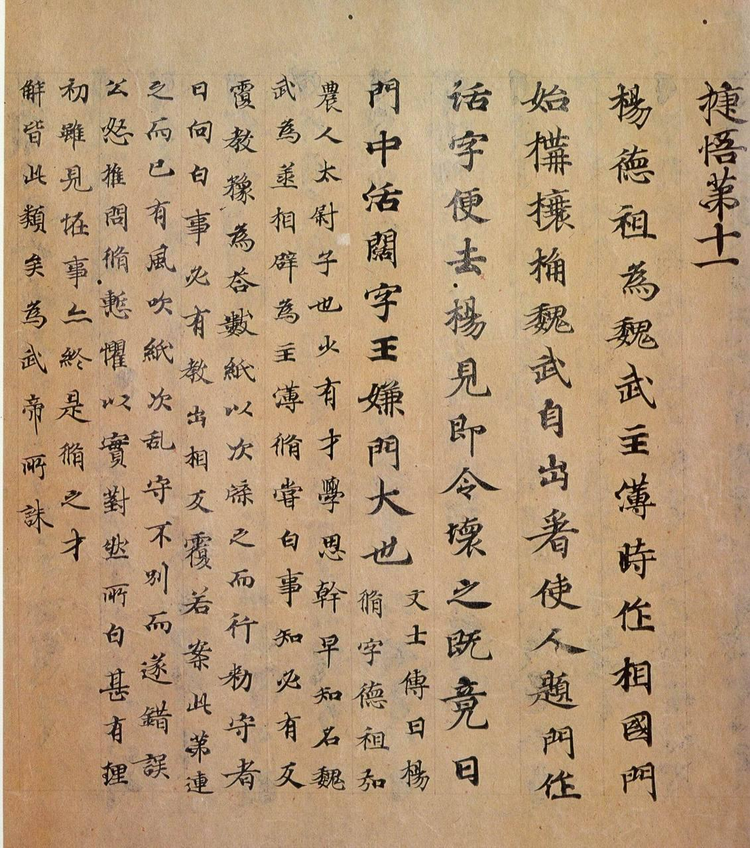 捷悟第十一
楊德祖為魏武主薄時作相國門
始構榱桷魏武自出看使人題門作
活字便去楊見即令壞之既竟曰
門中活闊字王嫌門大也
文士傳曰楊
脩字德祖弘
農人太尉子也少有才學思幹早知名魏
武為丞相辟為主薄脩嘗白事知必有反
覆教豫為荅數紙以次牒之而行勑守者
曰向白事必有教出相反覆若案此第連
之而已有風吹紙次乱守不別而遂錯誤
公怒推問脩慙懼以實對然所白甚有理
初雖見怪事亦終是脩之才
解皆此類矣為武帝所誅